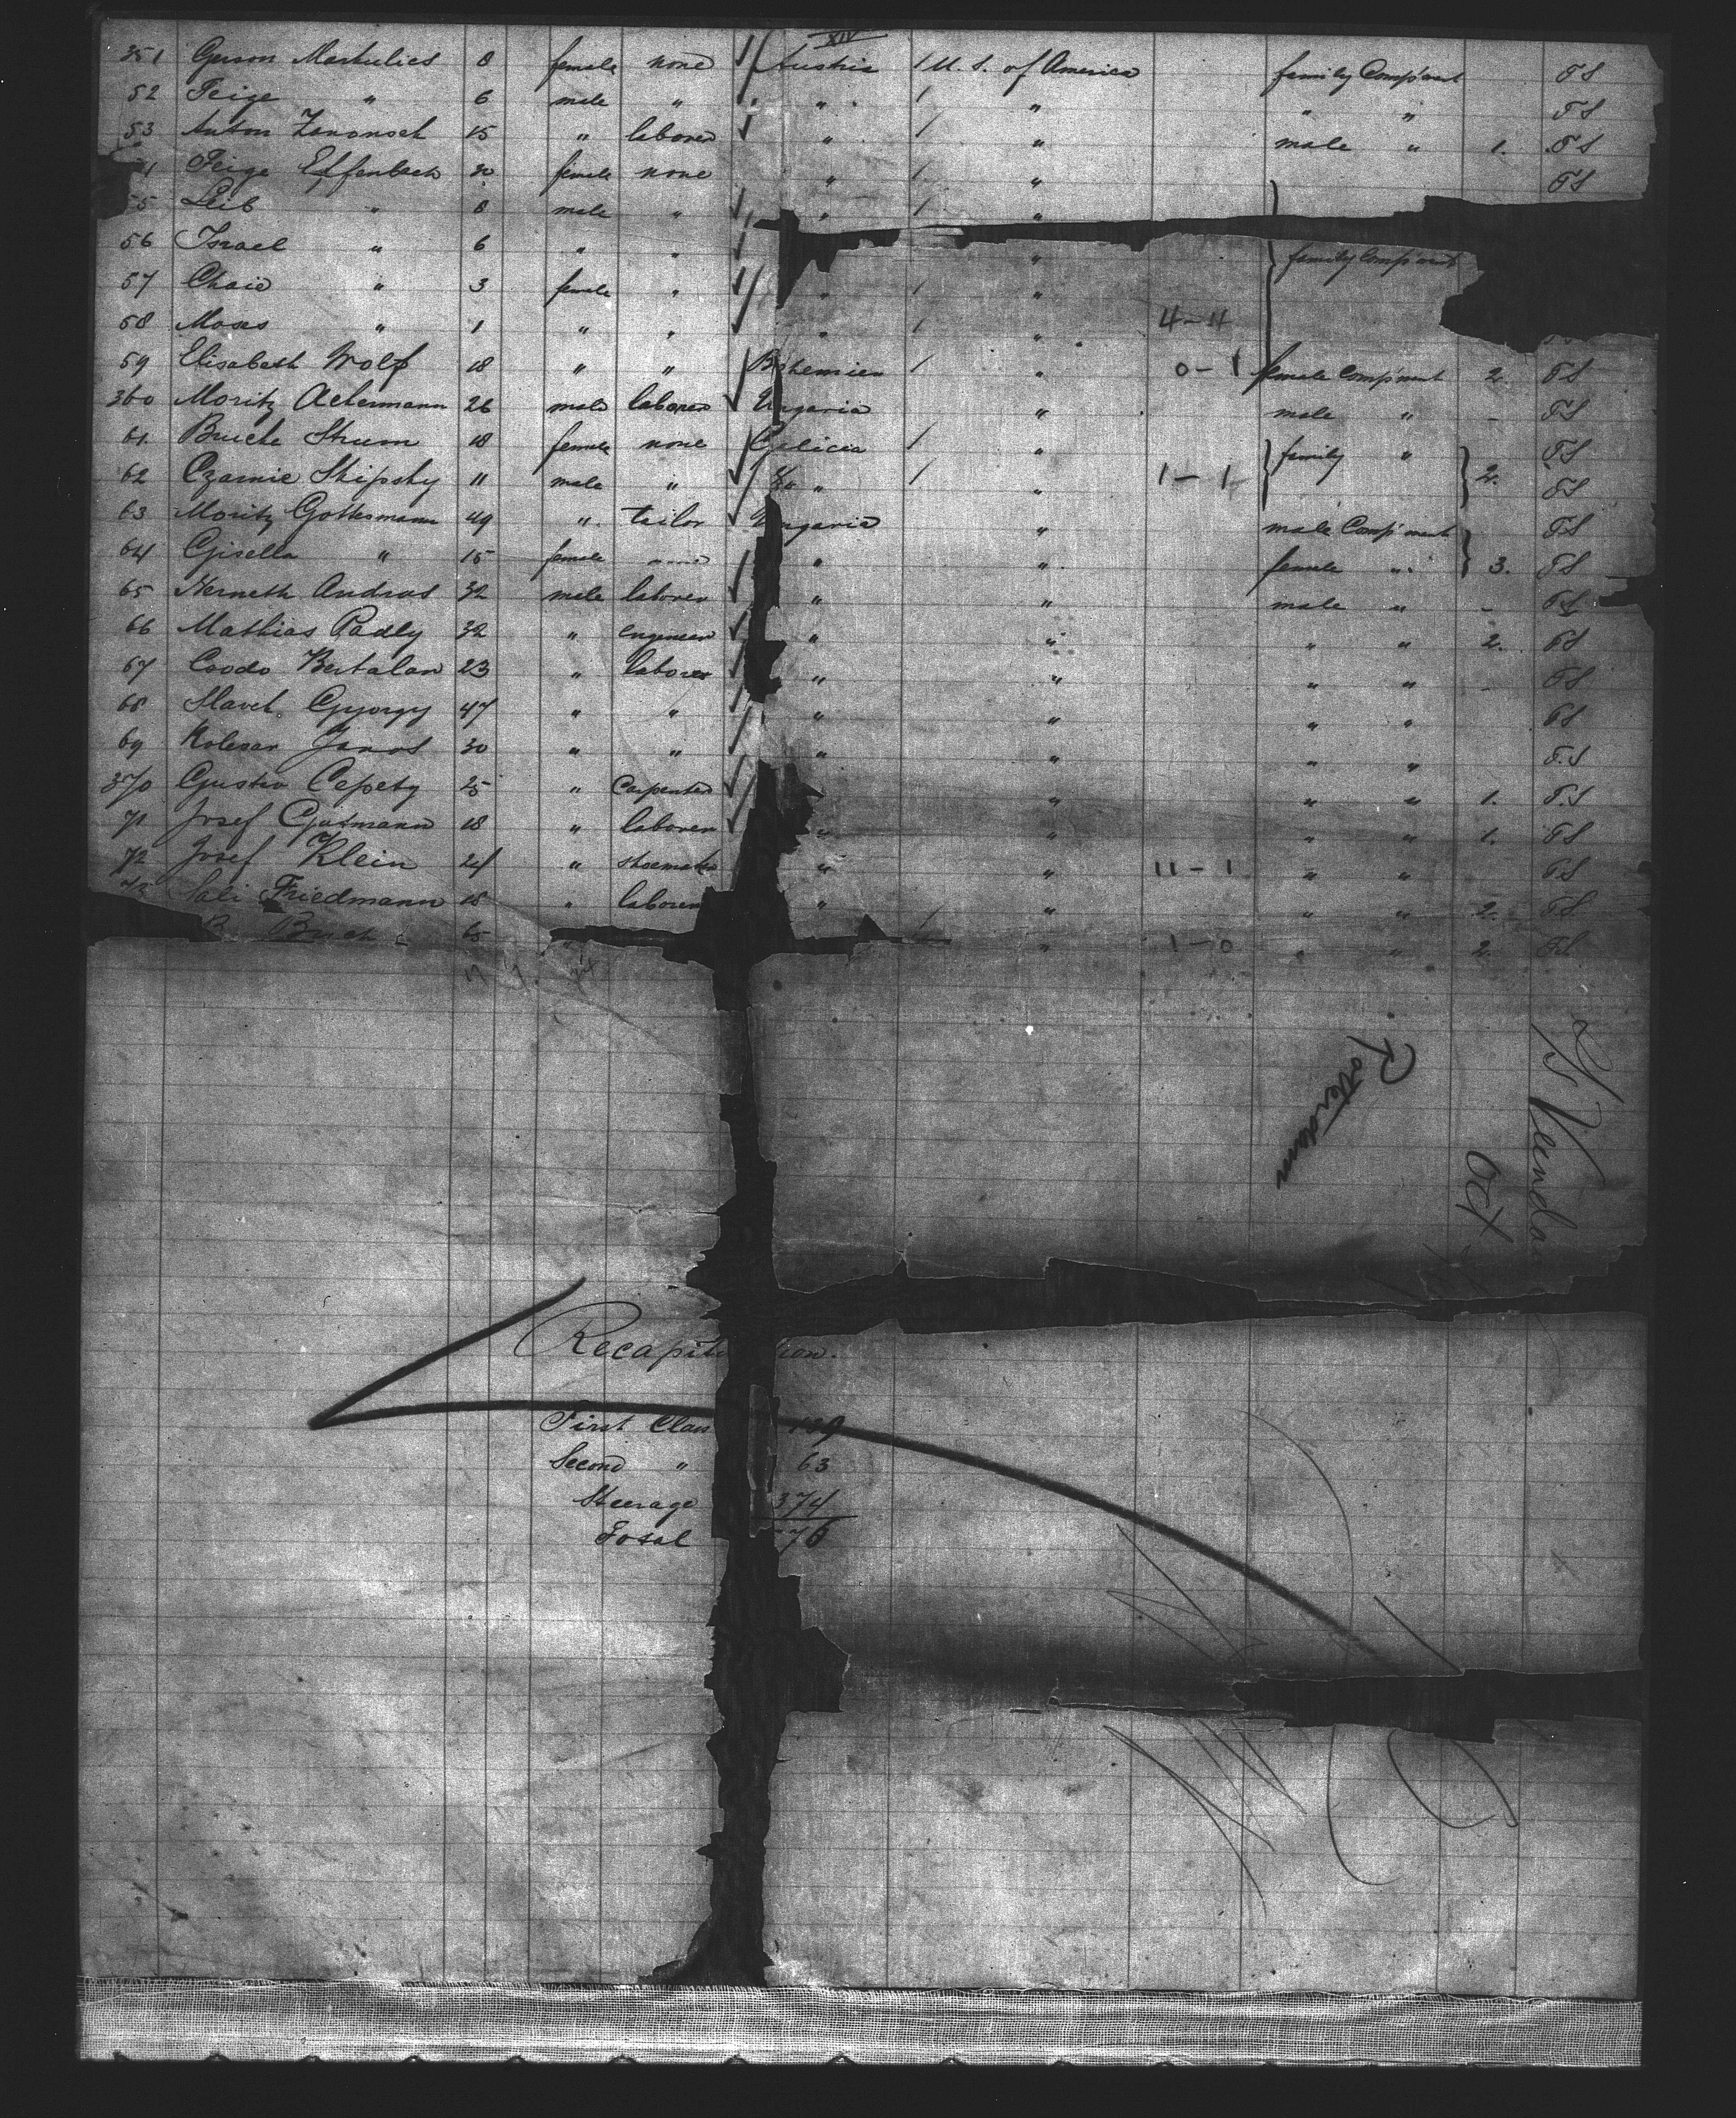 XIV
351 Gerson Markulies 8 female none Austria / U. S. of America family Comp'ment TS
52 Feige " 6 male " " / " " " TS
53 Anton 15 " laborer " / " male " 1. TS
Feige Effenbach 30 female none " / " TS
55 Leib " 8 male " " / "
56 Israel " 6 " " " family Comp'ment
57 Chaie " 3 female " " / "
58 Moses " 1 " " " / " 4-4
59 Elisabeth Wolf 18 " " Bohemien / " 0-1 female Comp'ment 2. TS
360 Moritz Ackermann 26 male laborer Ungaria " male " - TS
61. Bruche Strum 18 female none Galicia / " family " TS
62 Czarnie Shipsky 11 male " " / " 1-1 2. TS
63 Moritz Gottesmann 49 " tailor Ungaria " male Comp'ment TS
64 Gisella " 15 female " " female " 3. TS
65 Nemeth Andras 32 male laborer " " male " - TS
66 Mathias Padly 32 " engeneer " " " " 2. TS
67 Bertalan 23 " laborer " " " " - TS
68 György 47 " " " " " " TS
69 Kolesar Janos 30 " " " " " " T.S
370 Gustav Cepety 25 " Carpenter " " " 1. T.S
71 Josef Gutmann 18 " laborer " " " " 1. TS
72 Josef Klein 24 " shoemaker " " 11-1 " " TS
73 Sali Friedmann 18 " laborer " / " " " 2. TS
65 " " 1-0 " " 2. TS
Rotterdam
Oct
SS Veendam
Recapitulation.
First Class
Second " 63
Steerage 374
Total